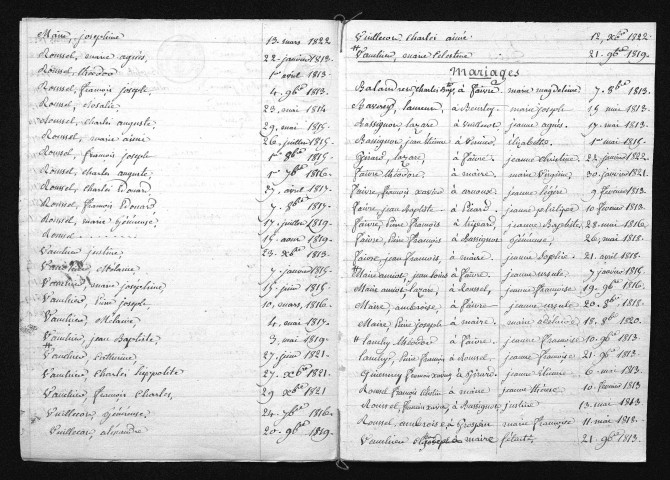 Maire, josephine 13 mars 1822
Roussel, marie agnès, 22 janvier 1813
Roussel, théodore 1er avril 1813
Roussel, françois joseph 4. 9bre 1813
Roussel, Rosalie 23. mai 1814
Roussel, Charles auguste 29. mai 1815
Roussel, marie aimée 26. juillet 1815
Roussel, françois joseph 1er 8bre 1815
Roussel, Charles auguste, 1er 7bre 1816
Roussel, Charles Edouard 27. avril 1817
Roussel, françois Edouard 7. 8bre 1817
Roussel, marie Génereuse, 17 juillet 1819
Roussel 15 aout 1819
Vautier justine 23. Xbre 1813
Mélanie 7 janvier 1815
Vautier, marie josephine 15. juin 1815
Vautier, Pierre joseph 10. mars, 1816
Vautier, Mélanie 4. mai 1817
Vautier, jean Baptiste 3. mai 1819
Vautier, Catherine 27. juin 1821
Vautier Charles hyppolite 27. Xbre 1821
Vautier, françois Charles, 29 Xbre 1821
Vuillecar, Génereuse, 24. 7bre 1816
Vuillecar, alexandre 20. 9bre 1819
Vuillecar Charles aimé 12. Xbre 1822
Vautier, marie Celestine 21. 9bre 1819
Mariages
Balandret Charles à Faivre marie magdeleine 7. 8bre 1813
à Bourley marie joseph 15 mai 1813
Bassignot, lazare, à Vuillemot jeanne agnès. 17. mai 1813
Bassignot, jean étienne à Vernier, élizabette. 1er mai 1815
Gérard, lazare, à Faivre. jeanne christine 23 janvier 1822
Faivre théodore à maire. marie Virginie. 30. janvier 1821
Faivre, françois xavier à arnoux jeanne ligère 9 février 1813
Faivre, jean Baptiste à Picard. jeanne 10 février 1813
Faivre, Pierre françois à jeanne Baptiste 28. mai 1816
Faivre, Pierre françois à Bassignot Génereuse, 26. mai 1818
Faivre, jean françois à maire. jeanne sophie 21. avril 1818
Maire amiot, jean louis à Faivre. jeanne ursule 7 janvier 1815
Maire amiot, lazare, à Roussel, jeanne françoise 19. 9bre 1816
Maire, ambroise, à Faivre jeanne ursule 20. 8bre 1818
Maire, Pierre joseph à maire. marie 18. 8bre 1820
théodore à Faivre, jeanne françoise, 10. 9bre 1813
Pierre françois à Roussel, jeanne françoise 21. 9bre 1813
françois xavier à Gérard, jeanne 6. mai 1813
Roussel françois à maire jeanne 10 février 1813
Roussel, françois xavier à Bassignot justine 13. mai 1813
Roussel, ambroise à Grosjean marie françoise 11. mai 1818
Vautier joseph à maire félicité, 21. 9bre 1813